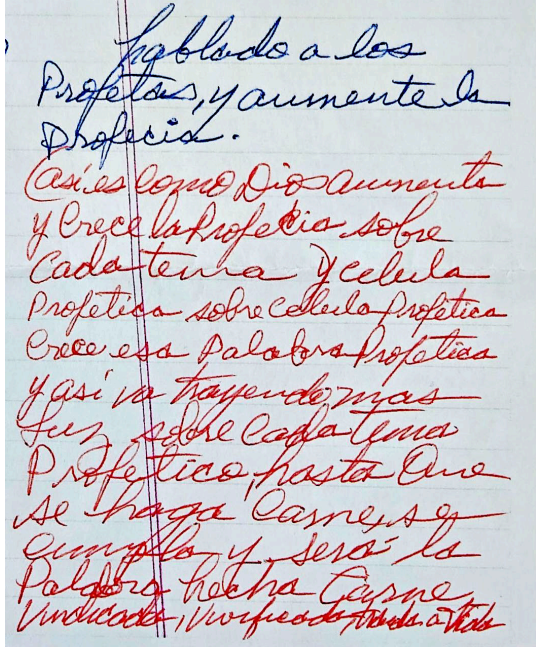 hablado a los
Profetas, y aumente la
Profecia.
(así es como Dios aumenta
y Crece la Profecia sobre
Cada tema y celula
Profética sobre celula Profética
Crece esa Palabra Profetica
y así va trayendo mas
Luz sobre Cada tema
Profético, hasta Que
se haga Carne, se
cumpla y será la
Palabra hecha Carne,
Vindicada, Vivificada, traida a Vida